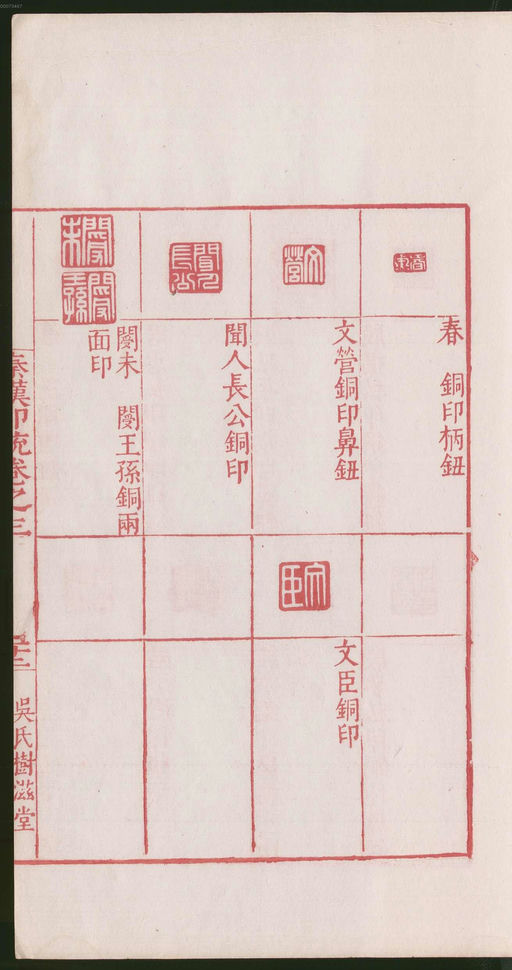 春　銅印柄鈕
文營銅印鼻鈕
文臣銅印
聞人長公銅印
閿未　閿王孫銅兩
面印
秦漢印統卷之三
吳氏樹滋堂
00073447